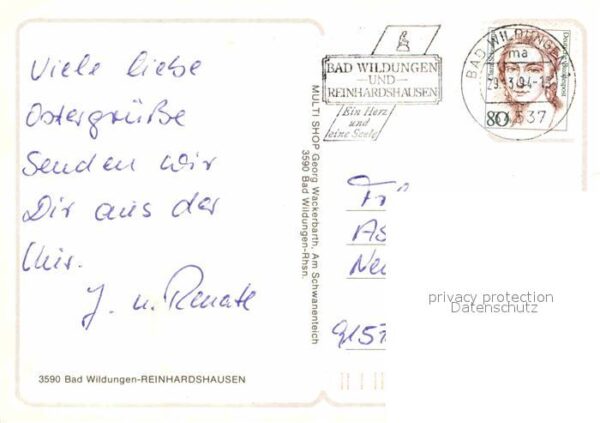 Viele liebe
Ostergrüße
Senden wir
Dir aus der
Kur.
J. u. Renate
3590 Bad Wildungen-REINHARDSHAUSEN
MULTI SHOP Georg Wackerbarth, Am Schwanenteich
3590 Bad Wildungen-Rhsn.
BAD WILDUNGEN
UND
REINHARDSHAUSEN
Ein Herz
und
eine Seele
BAD WILDUNGEN
ma
29.-3.94-18
537
80
Deutsche Bundespost
Fr
As
Neu
9157
privacy protection
Datenschutz